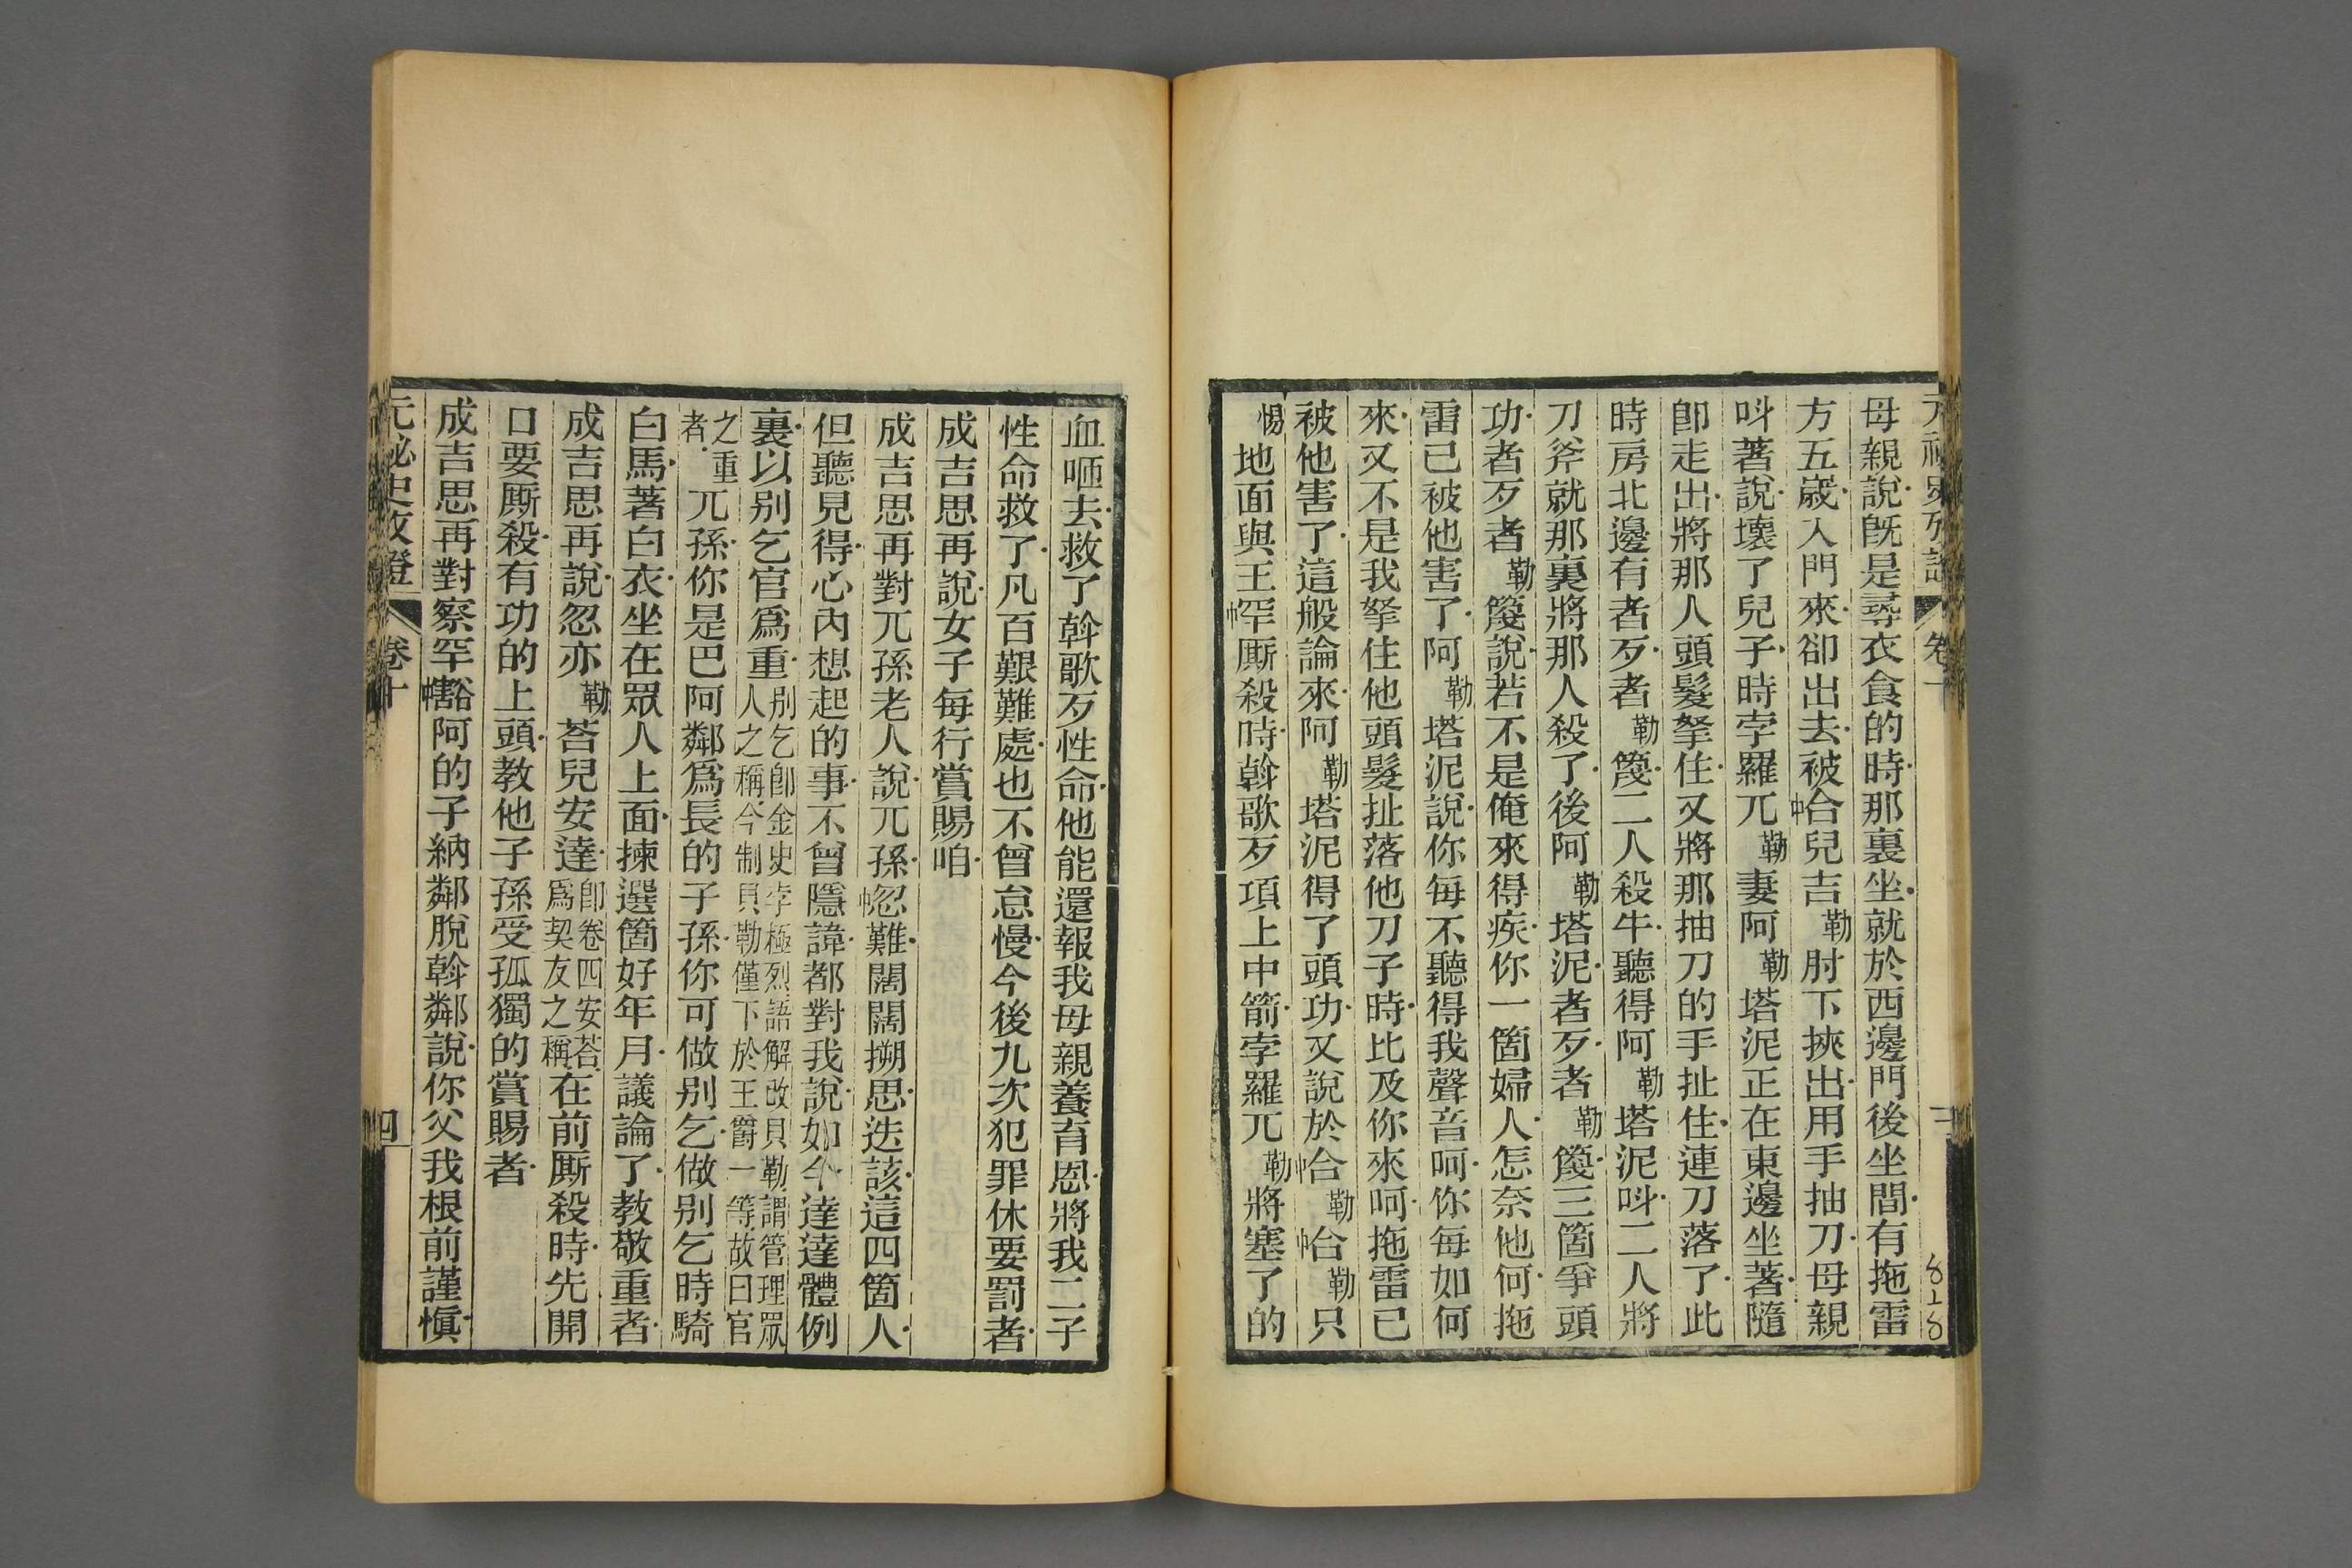 母親說既是尋衣食的時那裏坐就於西邊門後坐間有拖雷
方五歲入門來卻出去被中合兒吉勒肘下挾出用手抽刀母親
呌著說壞了兒子時孛羅兀勒妻阿勒塔泥正在東邊坐著隨
卽走出將那人頭髮拏住又將那抽刀的手扯住連刀落了此
時房北邊有者歹者勒篾二人殺牛聽得阿勒塔泥呌二人將
刀斧就那裏將那人殺了後阿勒塔泥者歹者勒篾三箇爭頭
功者歹者勒篾說若不是俺來得疾你一箇婦人怎奈他何拖
雷已被他害了阿勒塔泥說你每不聽得我聲音呵你每如何
來又不是我拏住他頭髮扯落他刀子時比及你來呵拖雷已
被他害了這般論來阿勒塔泥得了頭功又說於中合勒中合勒只
惕地面與王中罕厮殺時斡歌歹項上中箭孛羅兀勒將塞了的
血咂去救了斡歌歹性命他能還報我母親養育恩將我二子
性命救了凡百艱難處也不曾怠慢今後九次犯罪休要罰者
成吉思再說女子每行賞賜咱
成吉思再對兀孫老人說兀孫中忽難闊闊搠思迭該這四箇人
但聽見得心內想起的事不曾隱諱都對我說如今達達體例
裏以别乞官爲重别乞卽金史孛極烈語解改貝勒謂管理眾
人之稱今制貝勒僅下於王爵一等故曰官
之重
者兀孫你是巴阿鄰爲長的子孫你可做别乞做别乞時騎
白馬著白衣坐在眾人上面揀選箇好年月議論了教敬重者
成吉思再說忽亦勒荅兒安達卽卷四安荅
爲契友之稱在前厮殺時先開
口要厮殺有功的上頭教他子孫受孤獨的賞賜者
成吉思再對察罕中豁阿的子納鄰脫斡鄰說你父我根前謹愼
元祕史攷證 卷十 四